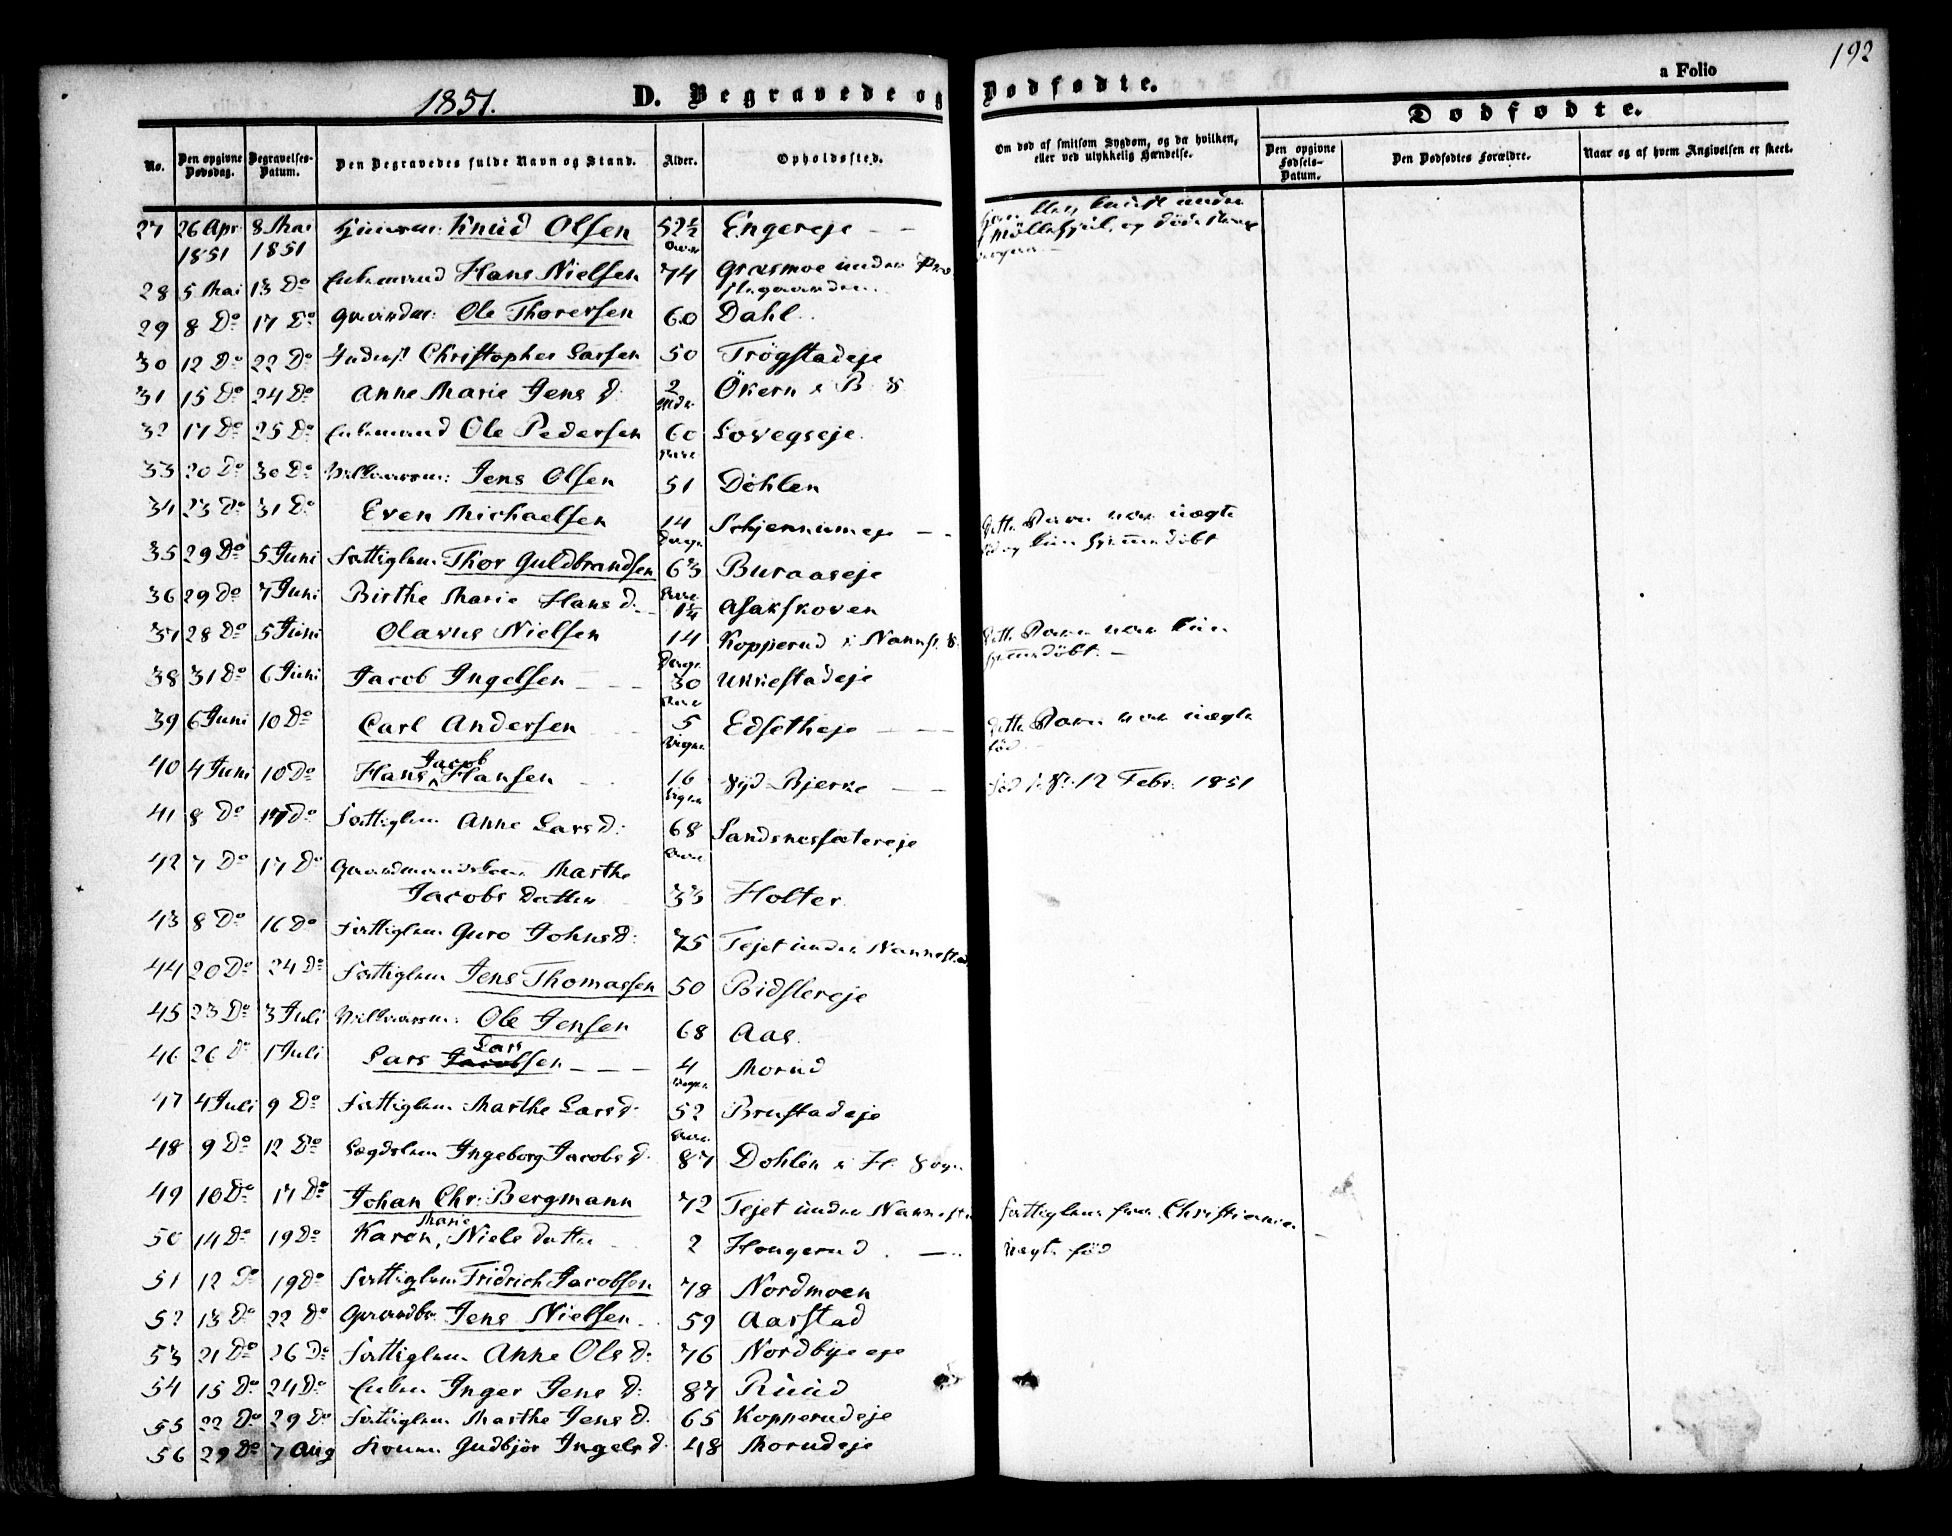 192
1851.
D. Begravede og Dødfødte.
a Folio
Dødfødte.
No.
Den opgivne Dødsdag.
Begravelses-Datum.
Den Begravedes fulde Navn og Stand.
Alder.
Opholdssted.
Om død af smitsom Sygdom, og da hvilken, eller ved ulykkelig Hændelse.
Den opgivne Fødsels-Datum.
Den Dødfødtes Forældre.
Naar og af hvem Angivelsen er skeet.
27 26 Apr. 1851 8 Mai 1851 Knud Olsen 52½ Engereje
28 5 Mai 13 Do Hans Nielsen 74 Græsmoe under
29 8 Do 17 Do Ole Thorersen 60 Dahl
30 12 Do 22 Do Inderst Christopher Larsen 50 Trögstadeje
31 15 Do 24 Do Anne Marie Jens D. 2 Mdr. Ökern
32 17 Do 25 Do Enkemand Ole Pedersen 60 Lovegseje
33 20 Do 30 Do Jens Olsen 51 Döhlen
34 23 Do 31 Do Even Michaelsen 14 Dage Dette Barn var uægte
født og kun hjemmedöbt
35 29 Do 5 Juni Fattiglem Thor Guldbrandsen 63 Buraaseje
36 29 Do 7 Juni Birthe Marie Hans D. 1¼ Asakskoven
37 28 Do 5 Juni Olavus Nielsen 14 Dage Kopperud i Nannest. Dette Barn var kun
hjemmedöbt.
38 31 Do 6 Juni Jacob Ingelsen 30 Ukkestadeje
39 6 Juni 10 Do Carl Andersen 5 Edsetheje Dette Barn var uægte
fød
40 4 Juni 10 Do Hans Jacob Hansen 16 Uger Syd Bjerke 12 Febr. 1851
41 8 Do 17 Do Fattiglem Anne Lars D. 68 Sandsnessætereje
42 7 Do 17 Do Gaardmandskone Marthe
Jacobs Datter 33 Holter
43 8 Do 16 Do Fattiglem Guro Johns D. 75 Tejet under Nannestad
44 20 Do 24 Do Fattiglem Jens Thomassen 50 Bidslereje
45 23 Do 3 Juli Ole Jensen 68 Aas
46 26 Do 1 Juli Lars Larssen 4 Morud
47 4 Juli 9 Do Fattiglem Marthe Lars D. 52 Brustadeje
48 9 Do 12 Do Lægdslem Ingeborg Jacobs D. 87 Dohlen i H. Sogn
49 10 Do 17 Do Johan Chr. Bergmann 72 Tejet under Nannesta Fattiglem fra Christiania
50 14 Do 19 Do Karen Marie Niels Datter 2 Hougerud Uægte fød
51 12 Do 19 Do Fattiglem Fridrich Jacobsen 78 Nordmoen
52 13 Do 22 Do Gaardbr. Jens Nielsen 59 Aarstad
53 21 Do 26 Do Fattiglem Anne Ols D. 76 Nordbyeeje
54 15 Do 24 Do Enken Inger Jens D. 87 Ruud
55 22 Do 29 Do Fattiglem Marthe Jens D. 65 Kopperudeje
56 29 Do 7 Aug Konen Gudbjör Ingels D. 48 Morudeje